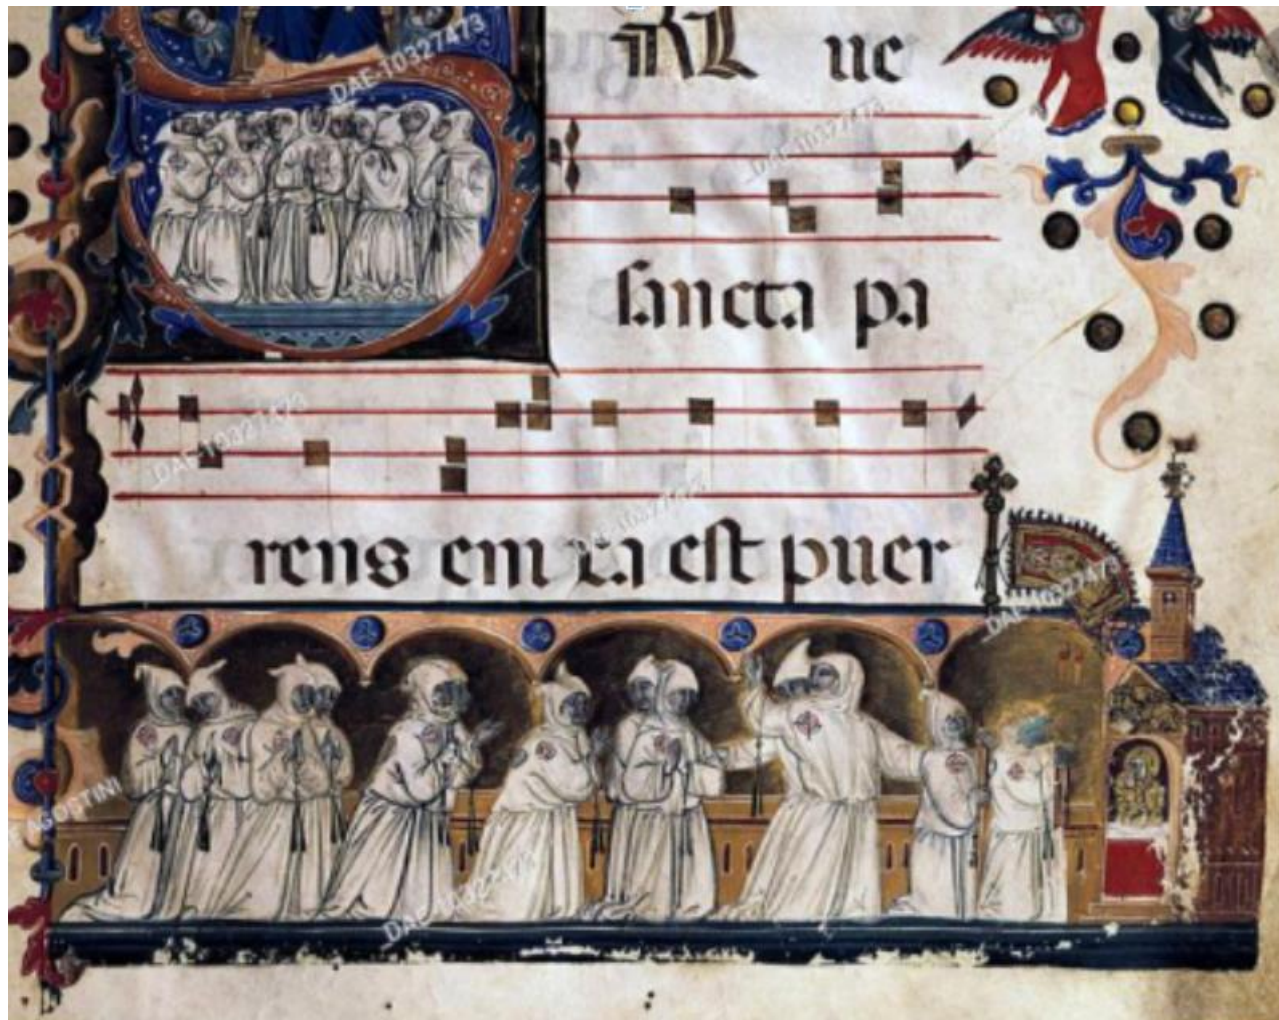 DAE-10327473
AL ue
_DAE-10327473
sancta pa
_DAE-10327473
_DAE-10327473
rens eni xa est puer
DAE-10327473
AGOSTINI
_DAE-10327473